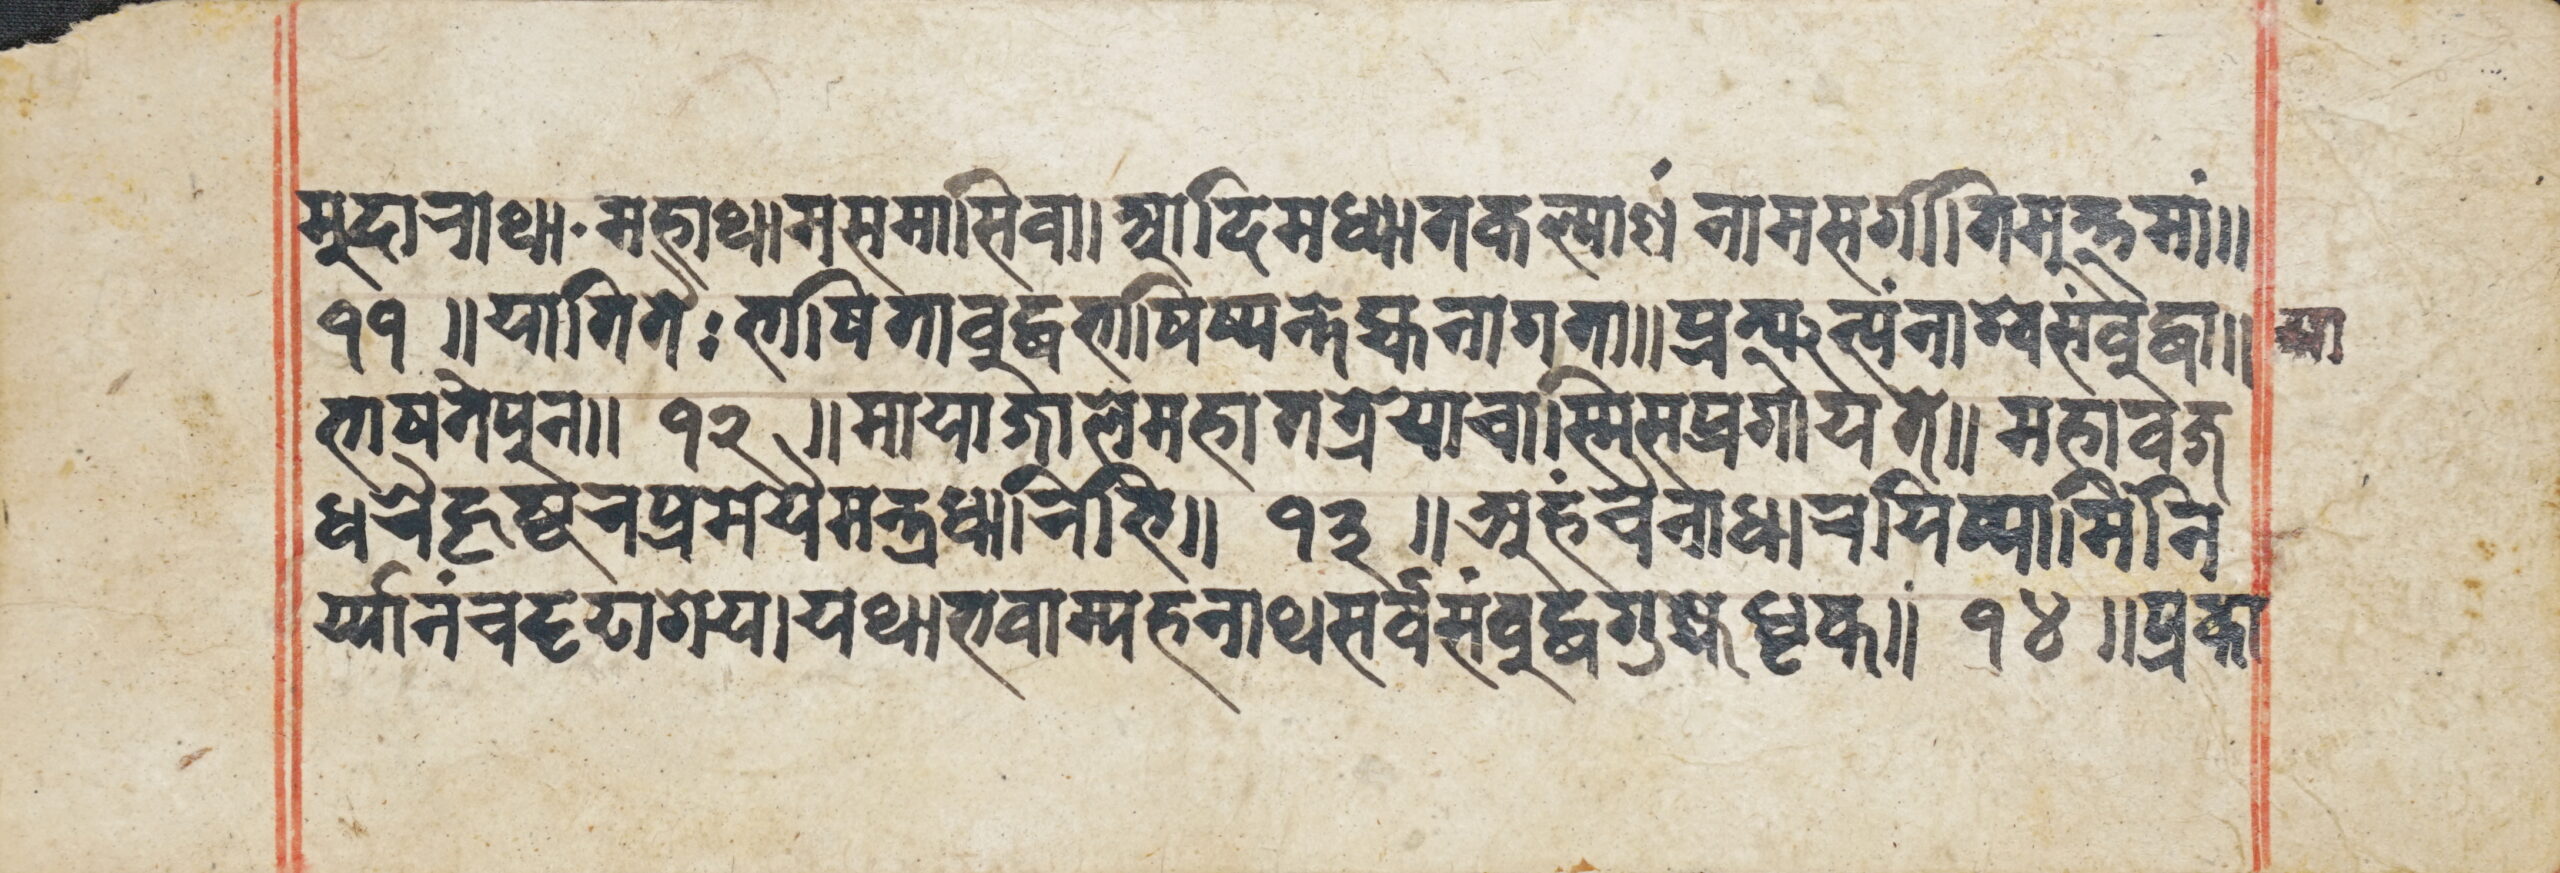 मुदाराथा·महाथामसमासिवा।आदिमध्यातकल्याणं नामसगीतिमुत्तमां॥
११ ॥यातितै:भाषितावुद्धभाषिष्यन्तेह्यनागता॥प्रत्युत्पंनाश्चसंवुद्धा॥ या
भाषतेपुन॥ १२ ॥मायाजालेमहातत्रेयाचास्मिसप्रगीयते॥महावज्र
धरैहृष्टरप्रमेयैमन्त्रधारिभि॥ १३ ॥अहंचैनाधारयिष्यामिनि
र्य्यानंचदृढाशय।यथाभवाम्यहनाथसर्वसंवुद्धगुह्यधृक्॥ १४ ॥प्रका